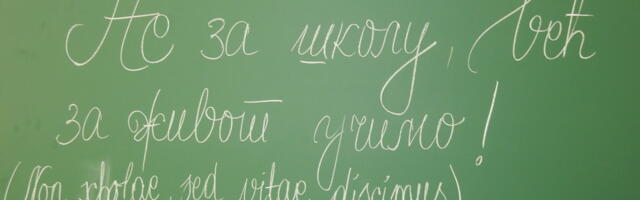 Не за школу, већ
за живот учимо!
(Non scholae, sed vitae discimus)